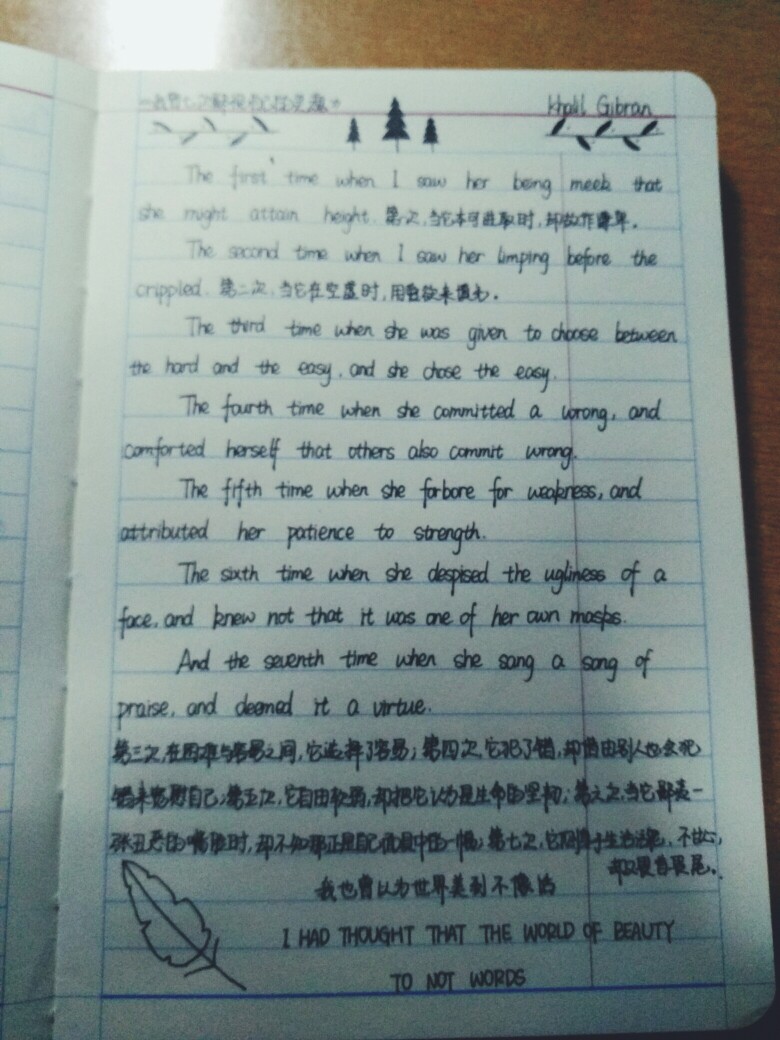 《我曾七次鄙视自己的灵魂》 Khalil Gibran
The first time when I saw her being meek that
she might attain height. 第一次,当它本可进取时,却故作谦卑。
The second time when I saw her limping before the
crippled. 第二次,当它在空虚时,用爱欲来填充。
The third time when she was given to choose between
the hard and the easy, and she chose the easy.
The fourth time when she committed a wrong, and
comforted herself that others also commit wrong.
The fifth time when she forbore for weakness, and
attributed her patience to strength.
The sixth time when she despised the ugliness of a
face, and knew not that it was one of her own masks.
And the seventh time when she sang a song of
praise, and deemed it a virtue.
第三次,在困难与容易之间,它选择了容易;第四次,它犯了错,却借由别人也会犯
错来宽慰自己;第五次,它自由软弱,却把它认为是生命的坚韧;第六次,当它鄙夷一
张丑恶的嘴脸时,却不知那正是自己面具中的一幅;第七次,它侧身于生活污泥,不甘心,
却又畏首畏尾。
我也曾以为世界美到不像话
I HAD THOUGHT THAT THE WORLD OF BEAUTY
TO NOT WORDS